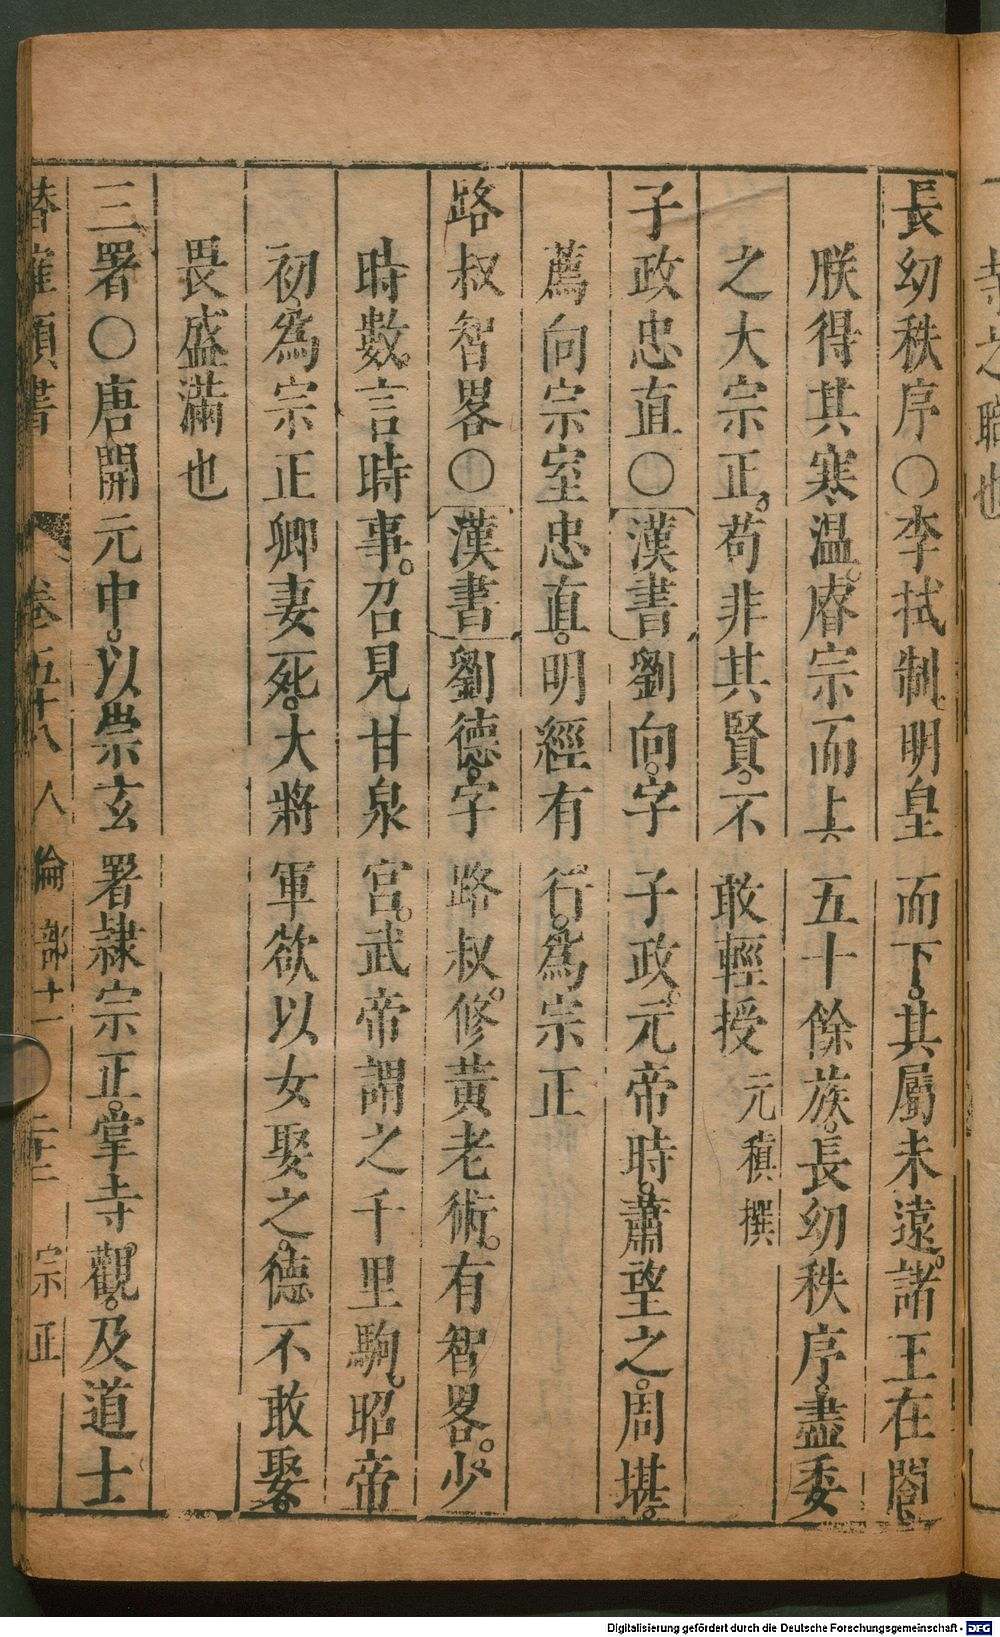 寺之職也
長幼秩序○李拭制。明皇而下。其屬未遠。諸王在閣。
朕得其寒溫。睿宗而上五十餘族。長幼秩序。盡委
之大宗正。苟非其賢。不敢輕授 元稹撰
子政忠直○漢書劉向。字子政。元帝時。蕭望之。周堪。
薦向宗室忠直。明經有行。爲宗正
路叔智畧○漢書劉德。字路叔。修黃老術。有智畧。少
時數言時事。召見甘泉宮。武帝謂之千里駒。昭帝
初爲宗正卿妻死。大將軍欲以女娶之。德不敢娶。
畏盛滿也
三署○唐開元中。以崇玄署隷宗正。掌寺觀。及道士
潛確類書 卷五十八 人倫部十一 二十二 宗正
Digitalisierung gefördert durch die Deutsche Forschungsgemeinschaft - DFG